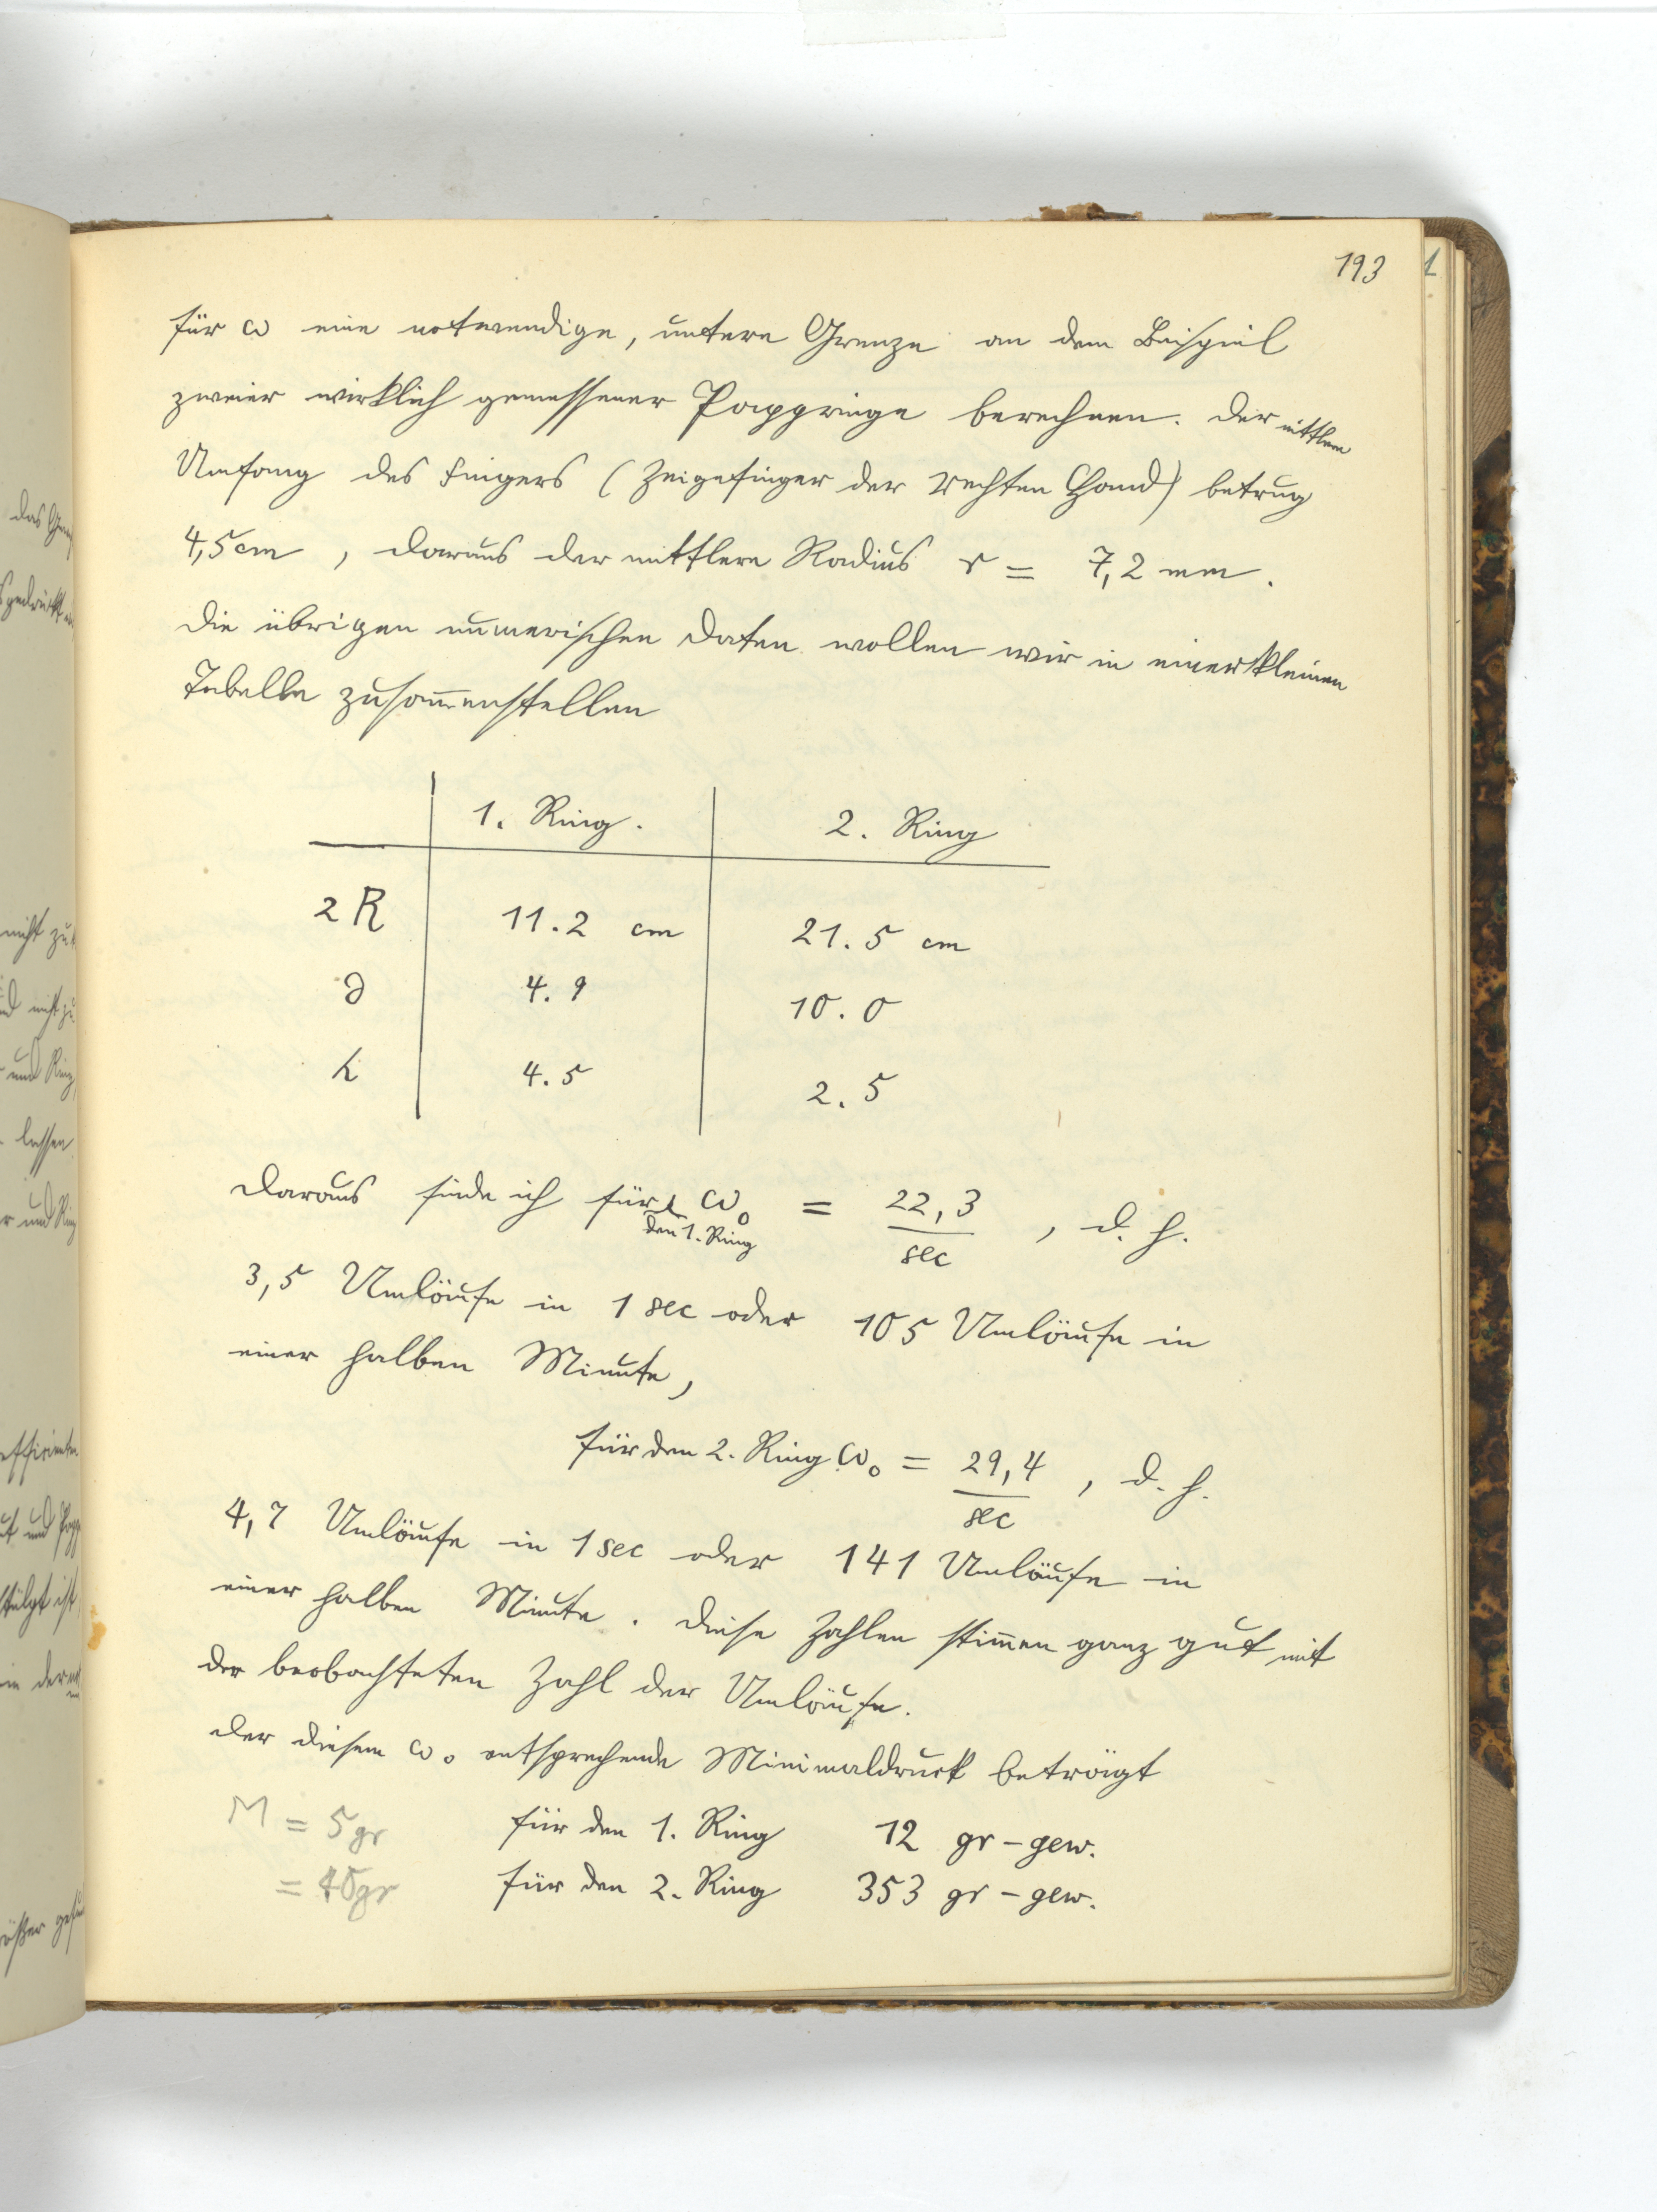 193
für ω eine notwendige, untere Grenze an dem Beispiel
zweier wirklich gemessener Pappringe berechnen. Der mittlere
Umfang des Fingers (Zeigefinger der rechten Hand) betrug
4,5 cm, daraus der mittlere Radius r = 7,2 mm.
Die übrigen numerischen Daten wollen wir in einer kleinen
Tabelle zusam̅enstellen
1. Ring. 2. Ring
2R 11.2 cm 21.5 cm
∂ 4.9 10.0
h 4.5 2.5
Daraus finde ich für den 1. Ring ω₀ = 22,3/sec, d. h.
3,5 Umläufe in 1 sec oder 105 Umläufe in
einer halben Minute,
für den 2. Ring ω₀ = 29,4/sec, d. h.
4,7 Umläufe in 1 sec oder 141 Umläufe in
einer halben Minute. Diese Zahlen stim̅en ganz gut mit
der beobachteten Zahl der Umläufe.
Der diesem ω₀ entsprechende Minimaldruck beträgt
M = 5gr für den 1. Ring 12 gr-gew.
= 40gr für den 2. Ring 353 gr-gew.